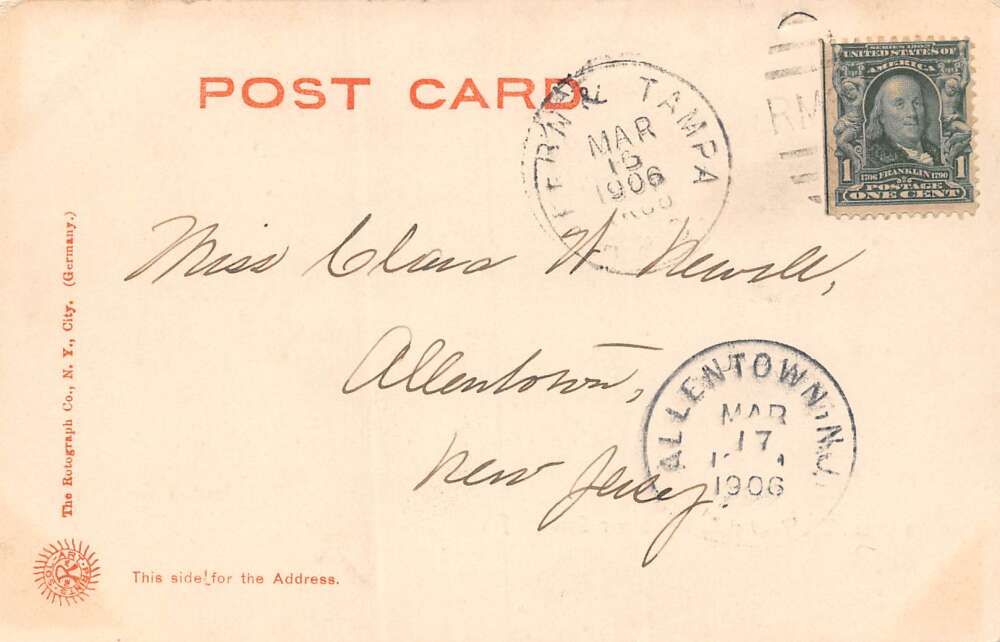 POST CARD
TAMPA
MAR
15
1906
RM
SERIES 1902
UNITED STATES OF
AMERICA
1 1
1706 FRANKLIN 1790
POSTAGE
ONE CENT
Miss Clara W Newell,
Allentown,
New Jersey.
ALLENTOWN, N.J.
MAR
17
1906
The Rotograph Co., N. Y., City. (Germany.)
SOL-ART PRINTS
This side for the Address.